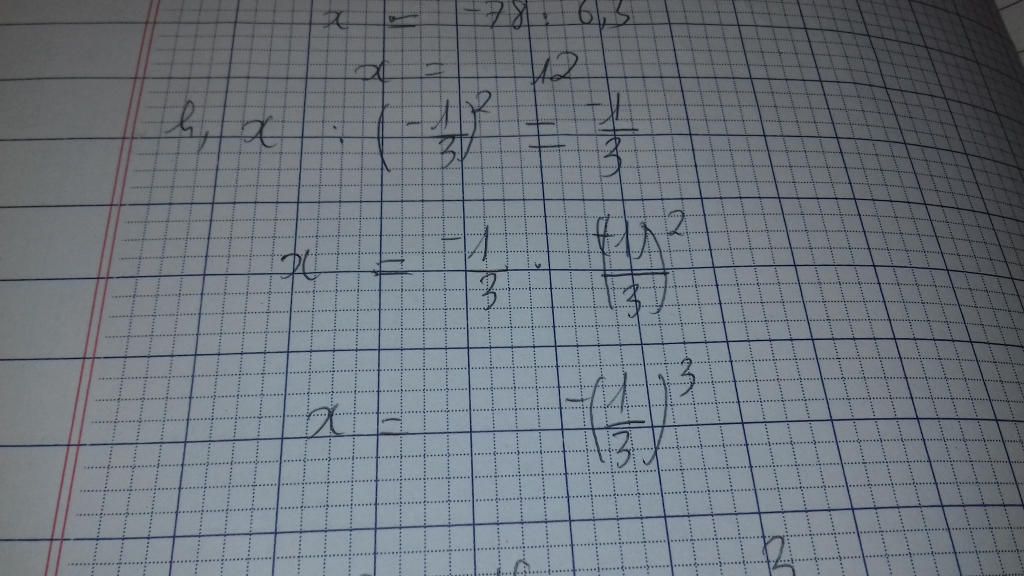 x = -78 : 6,5
x = 12
b, x : (-1/3)² = -1/3
x = -1/3 . (-1/3)²
x = -(1/3)³